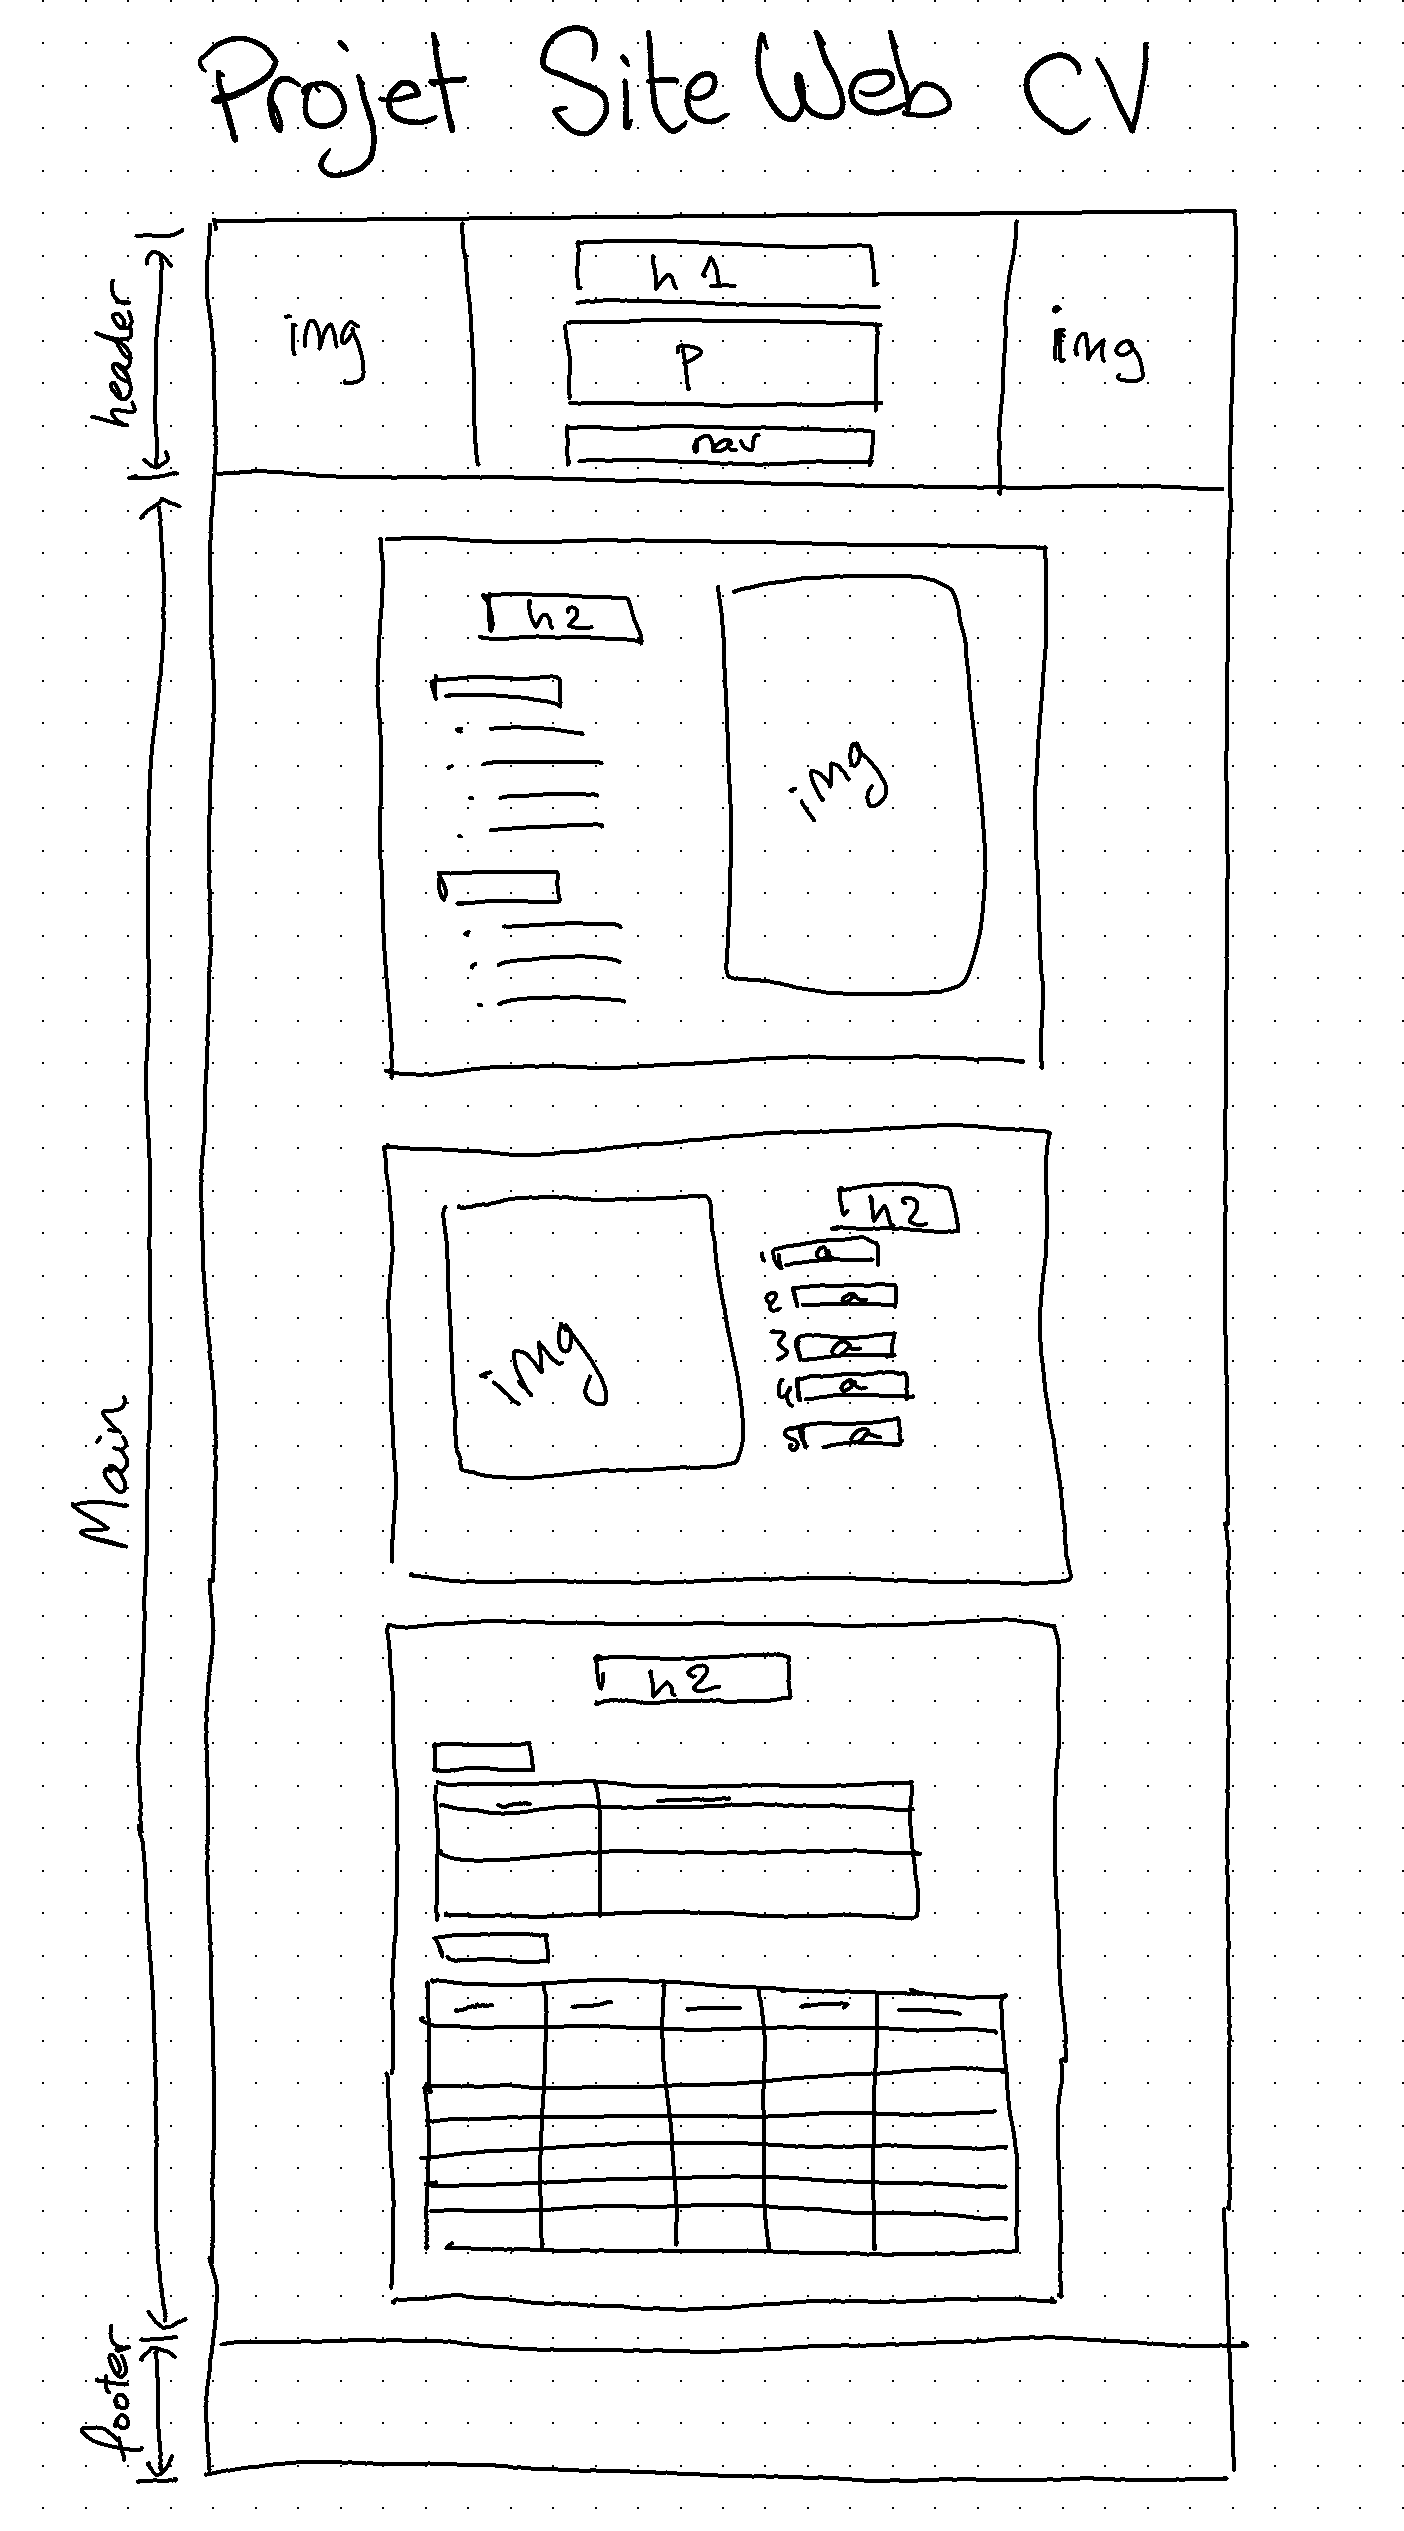 Projet Site Web CV
header
img
h1
p
nav
img
Main
h2
img
img
h2
1 a
2 a
3 a
4 a
5 a
h2
footer